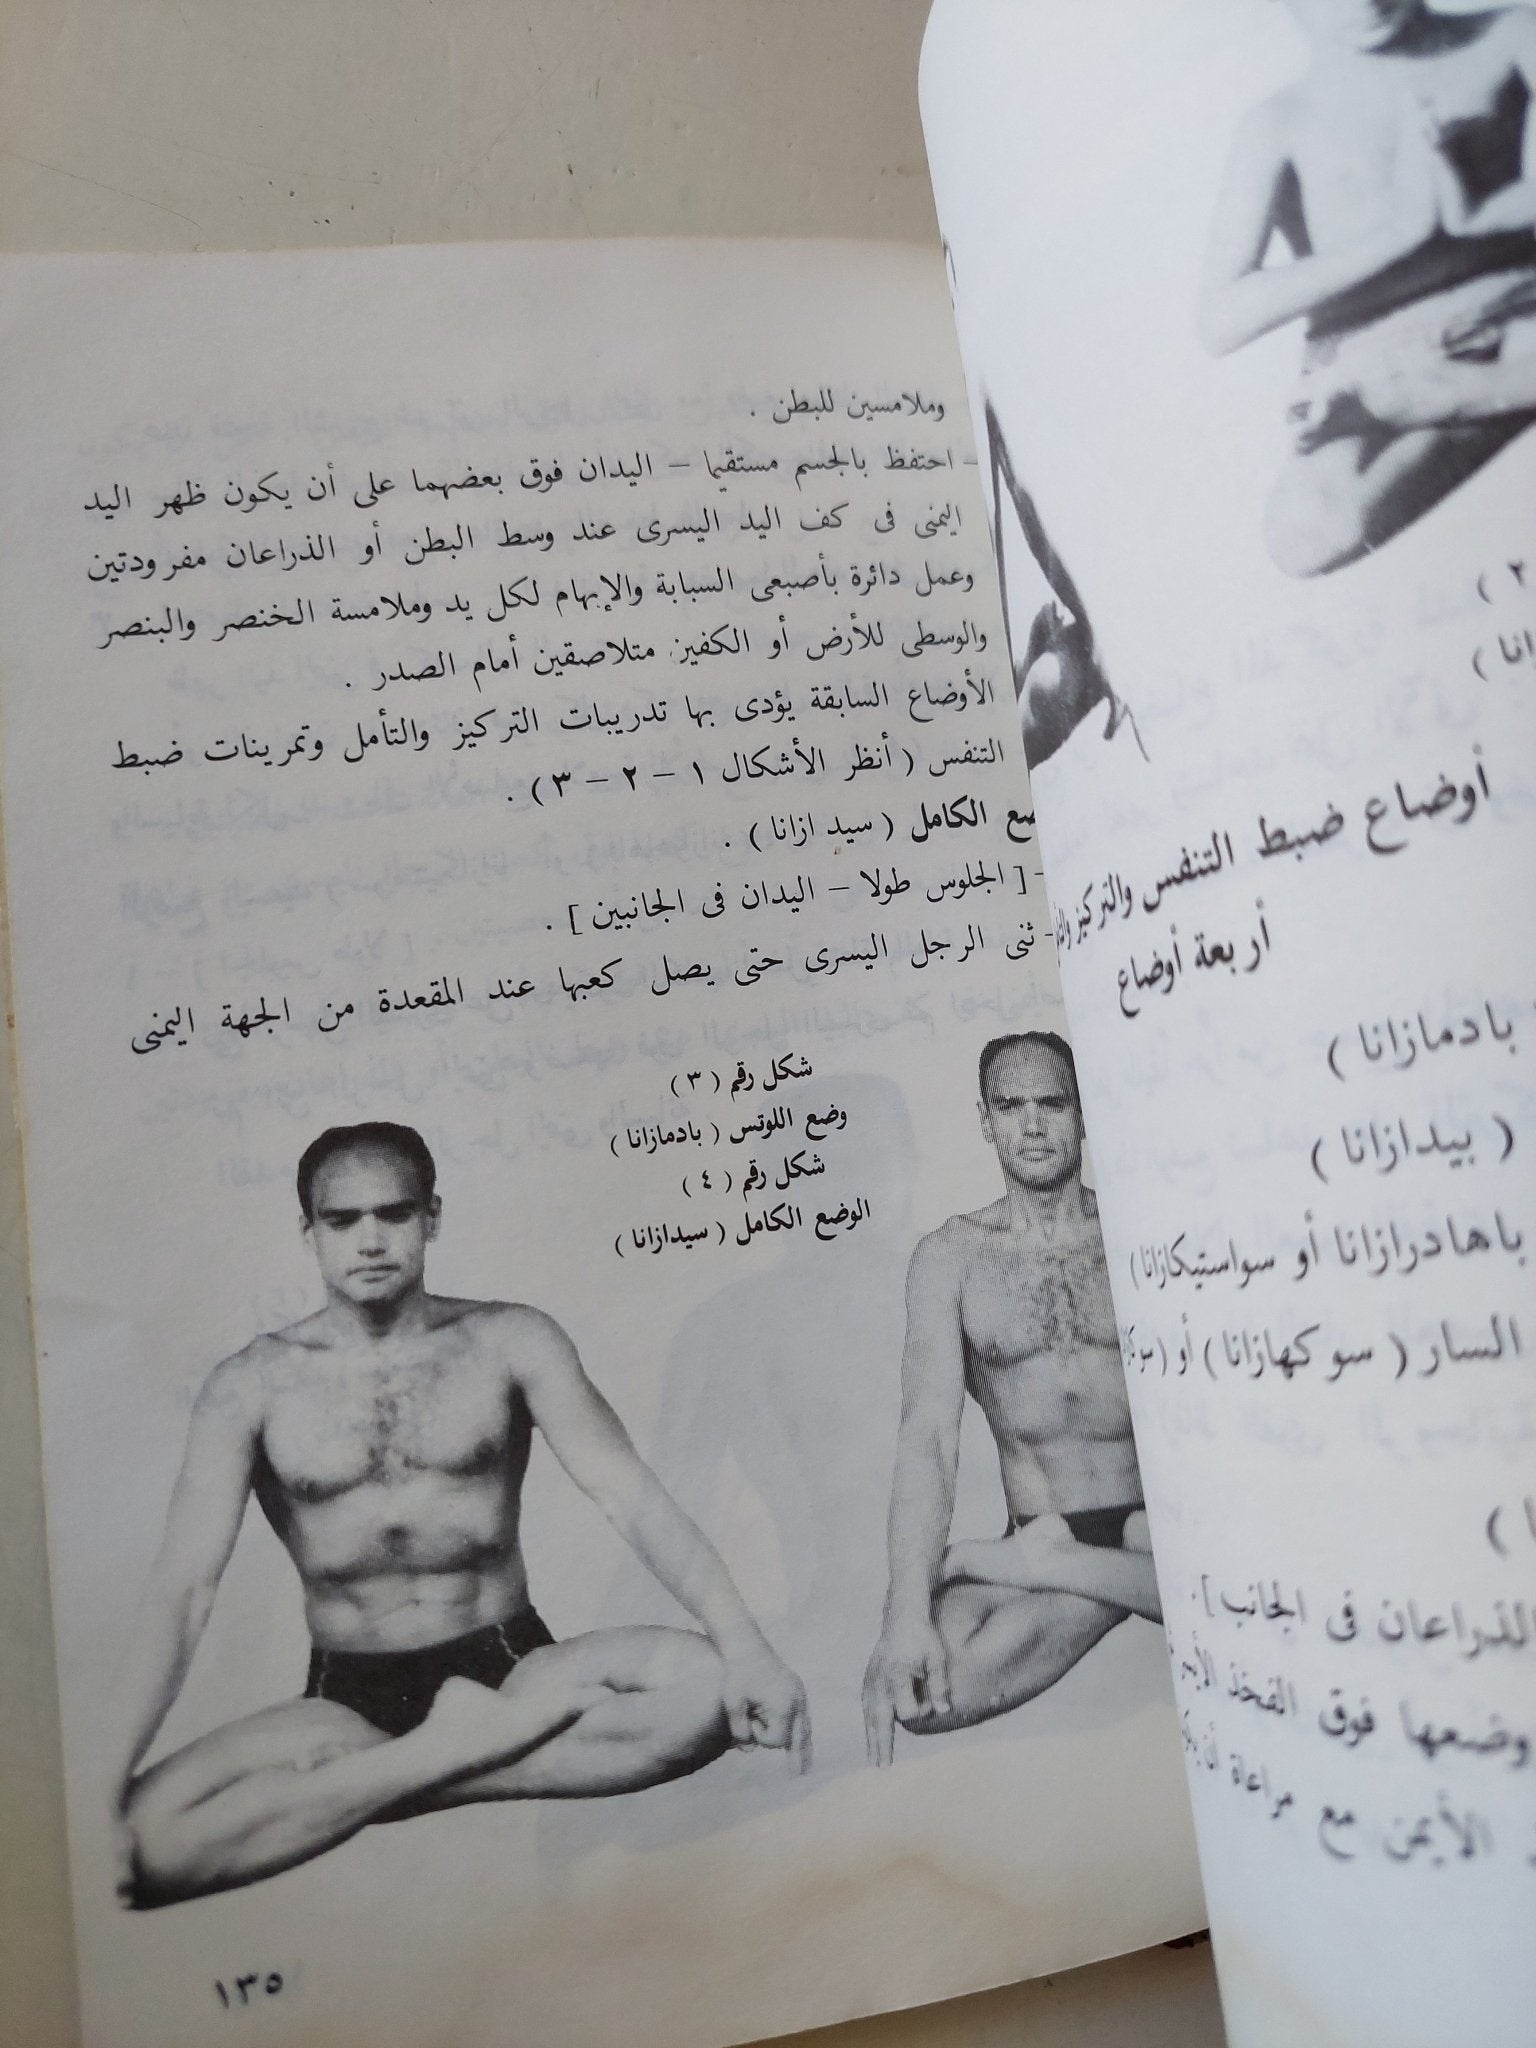 وملامسين للبطن .
– احتفظ بالجسم مستقيما – اليدان فوق بعضهما على أن يكون ظهر اليد
اليمنى فى كف اليد اليسرى عند وسط البطن أو الذراعان مفرودتين
وعمل دائرة بأصبعى السبابة والإبهام لكل يد وملامسة الخنصر والبنصر
والوسطى للأرض أو الكفين متلاصقين أمام الصدر .
الأوضاع السابقة يؤدى بها تدريبات التركيز والتأمل وتمرينات ضبط
التنفس ( أنظر الأشكال ١ – ٢ – ٣ ) .
الكامل ( سيد ازانا ) .
– [ الجلوس طولا – اليدان فى الجانبين ] .
– ثنى الرجل اليسرى حتى يصل كعبها عند المقعدة من الجهة اليمنى
شكل رقم ( ٣ )
وضع اللوتس ( بادمازانا )
شكل رقم ( ٤ )
الوضع الكامل ( سيدازانا )
١٣٥
٢ )
أوضاع ضبط التنفس والتركيز
أربعة أوضاع
بادمازانا )
( بيدازانا )
باهادرازانا أو سواستيكازانا)
السار ( سوكهازانا ) أو
الذراعان فى الجانب ] .
وضعها فوق الفخذ
الأيمن مع مراعاة